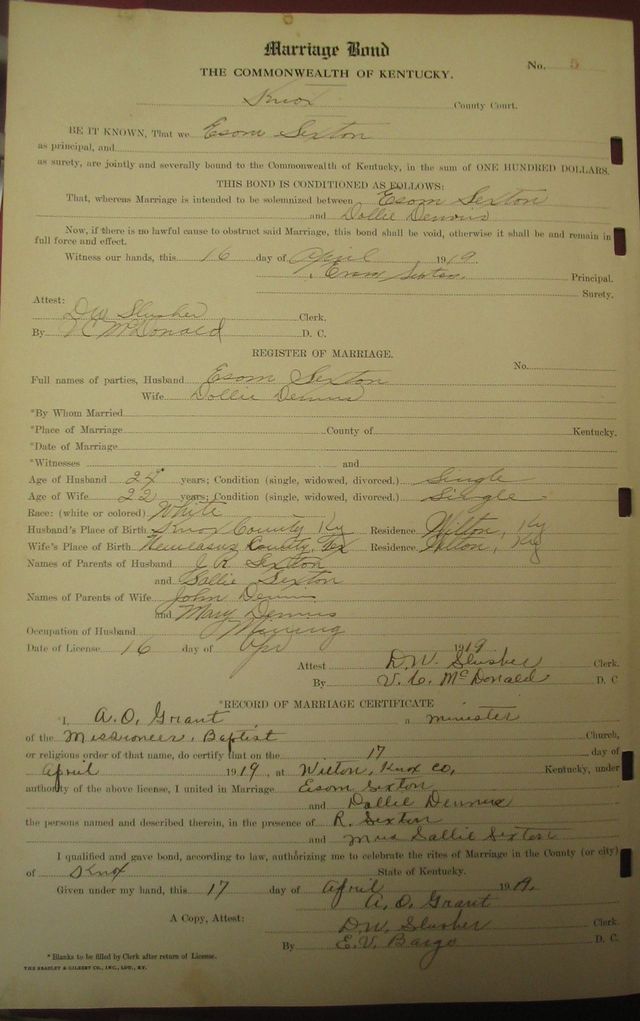 Marriage Bond
No. 5
THE COMMONWEALTH OF KENTUCKY.
Knox County Court.
BE IT KNOWN, That we Esom Sexton
as principal, and
as surety, are jointly and severally bound to the Commonwealth of Kentucky, in the sum of ONE HUNDRED DOLLARS.
THIS BOND IS CONDITIONED AS FOLLOWS:
That, whereas Marriage is intended to be solemnized between Esom Sexton
and Dollie Dennis
Now, if there is no lawful cause to obstruct said Marriage, this bond shall be void, otherwise it shall be and remain in
full force and effect.
Witness our hands, this 16 day of April 1919.
Esom Sexton Principal.
Surety.
Attest:
D W Slusher Clerk,
By V C McDonald D. C.
REGISTER OF MARRIAGE.
No.
Full names of parties, Husband Esom Sexton
Wife Dollie Dennis
*By Whom Married
*Place of Marriage County of Kentucky.
*Date of Marriage
*Witnesses and
Age of Husband 24 years; Condition (single, widowed, divorced.) Single
Age of Wife 22 years; Condition (single, widowed, divorced.) Single
Race: (white or colored) White
Husband's Place of Birth Knox County Ky Residence Wilton, Ky
Wife's Place of Birth County, Tex Residence Wilton, Ky
Names of Parents of Husband J. R. Sexton
and Sallie Sexton
Names of Parents of Wife John Dennis
and Mary Dennis
Occupation of Husband Mining
Date of License 16 day of Apr 1919
Attest D.W. Slusher Clerk.
By V. C. McDonald D. C
*RECORD OF MARRIAGE CERTIFICATE
*I, A. O. Grant a minister
of the Missioneer, Baptist Church,
or religious order of that name, do certify that on the 17 day of
April 1919, at Wilton, Knox Co, Kentucky, under
authority of the above license, I united in Marriage Esom Sexton
and Dollie Dennis
the persons named and described therein, in the presence of R. Sexton
and Mrs Sallie Sexton
I qualified and gave bond, according to law, authorizing me to celebrate the rites of Marriage in the County (or city)
of Knox State of Kentucky.
Given under my hand, this 17 day of April 1919.
A. O. Grant
A Copy, Attest: D.W. Slusher Clerk.
By E.V. Bargo D. C.
* Blanks to be filled by Clerk after return of License.
THE BRADLEY & GILBERT CO., INC., LOU., KY.